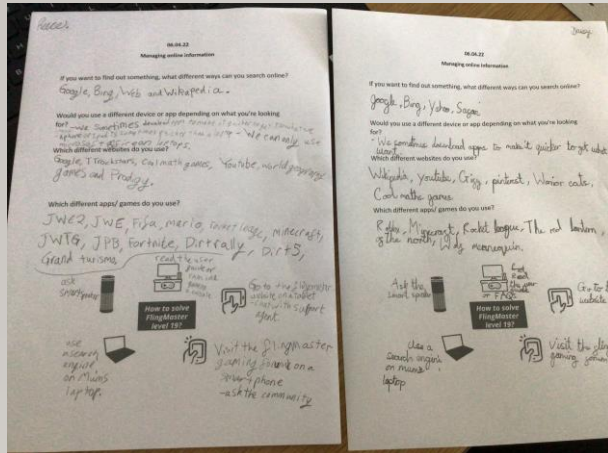 06.04.22
Managing online information
If you want to find out something, what different ways can you search online?
Google, Bing, Web and Wikapedia.
Would you use a different device or app depending on what you're looking
for? - We sometimes download apps to make it quicker to get
laptops.
Which different websites do you use?
Google, TTrockstars, Coolmath games, Youtube, world geography
games and Prodigy.
Which different apps/ games do you use?
JWE2, JWE, Fifa, mario, minecraft,
JWTG, JPB, Fortnite, Dirt rally, Dirt5,
Grand turismo,
read the user
guide or
ask
smart speaker
Go to the flingmaster
website on a tablet
- chat with support
agent
How to solve
FlingMaster
level 15?
use
a search
engine
on Mums
laptop.
Visit the flingmaster
gaming forum on a
smart phone
- ask the community
Daisy
06.04.22
Managing online information
If you want to find out something, what different ways can you search online?
google, Bing, Yahoo,
Would you use a different device or app depending on what you're looking
for?
- We sometimes download apps to make it quicker to get what
want
Which different websites do you use?
Wikipedia, youtube, pintrest, Warrior cats,
Cool maths games
Which different apps/ games do you use?
Rocket league, The red lantern,
of the north,
Ask the
smart speaker
Read
the user
guide
or FAQs
Go to
website
How to solve
FlingMaster
level 15?
Use a
search engine
on mums
laptop
Visit the
gaming forum